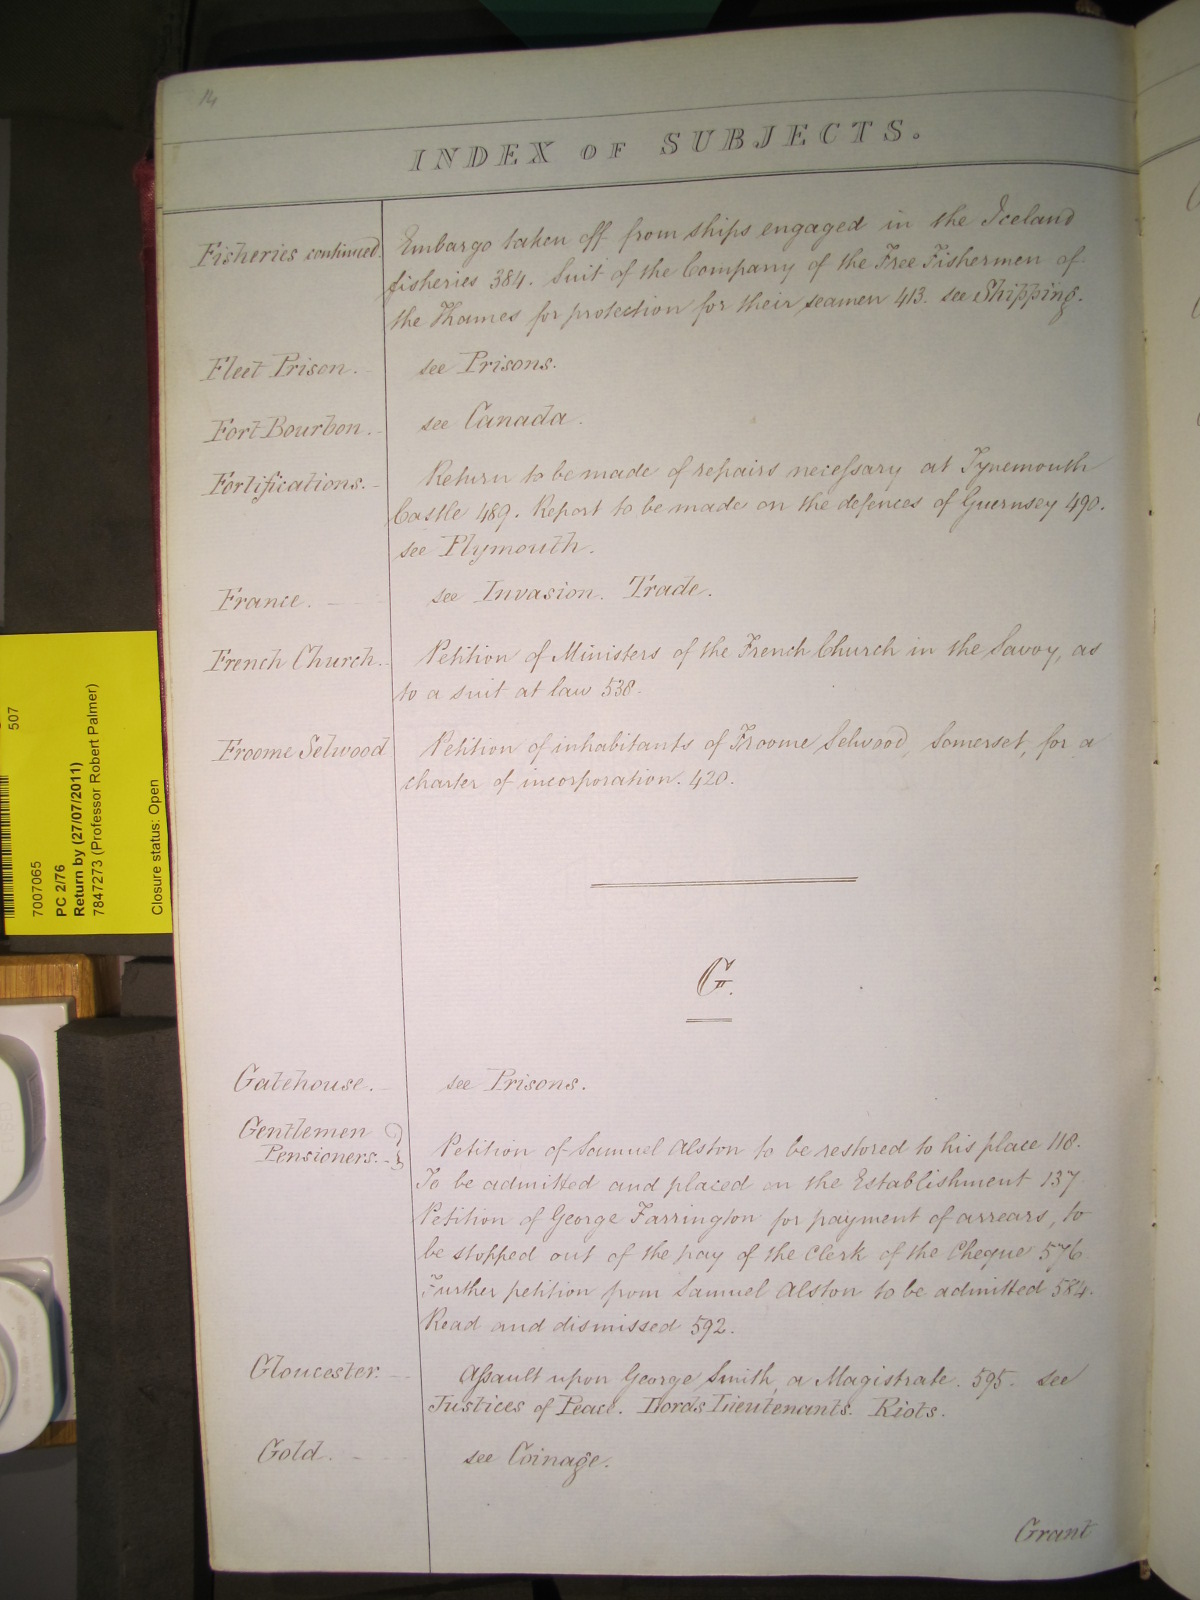 14
INDEX OF SUBJECTS.
Fisheries continued.
Embargo taken off from ships engaged in the Iceland
fisheries 384. Suit of the Company of the Free Fishermen of
the Thames for protection for their seamen 413. see Shipping.
Fleet Prison. see Prisons.
Fort Bourbon. see Canada.
Fortifications. Return to be made of repairs necessary at Tynemouth
Castle 489. Report to be made on the defences of Guernsey 490.
see Plymouth.
France. see Invasion. Trade.
French Church. Petition of Ministers of the French Church in the Savoy, as
to a suit at law 538.
Froome Selwood Petition of inhabitants of Froome Selwood, Somerset, for a
charter of incorporation. 420.
G.
Gatehouse. see Prisons.
Gentlemen
Pensioners. Petition of Samuel Alston to be restored to his place 118.
To be admitted and placed on the Establishment 137.
Petition of George Farrington for payment of arrears, to
be stopped out of the pay of the Clerk of the Cheque 576.
Further petition from Samuel Alston to be admitted 584.
Read and dismissed 592.
Gloucester. Assault upon George Smith, a Magistrate. 595. see
Justices of Peace. Lords Lieutenants. Riots.
Gold. see Coinage.
Grant
507
7007065
PC 2/76
Return by (27/07/2011)
7847273 (Professor Robert Palmer)
Closure status: Open